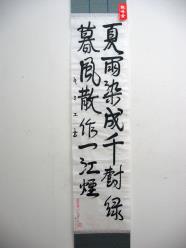 夏雨染成千樹緑
暮風散作一江煙